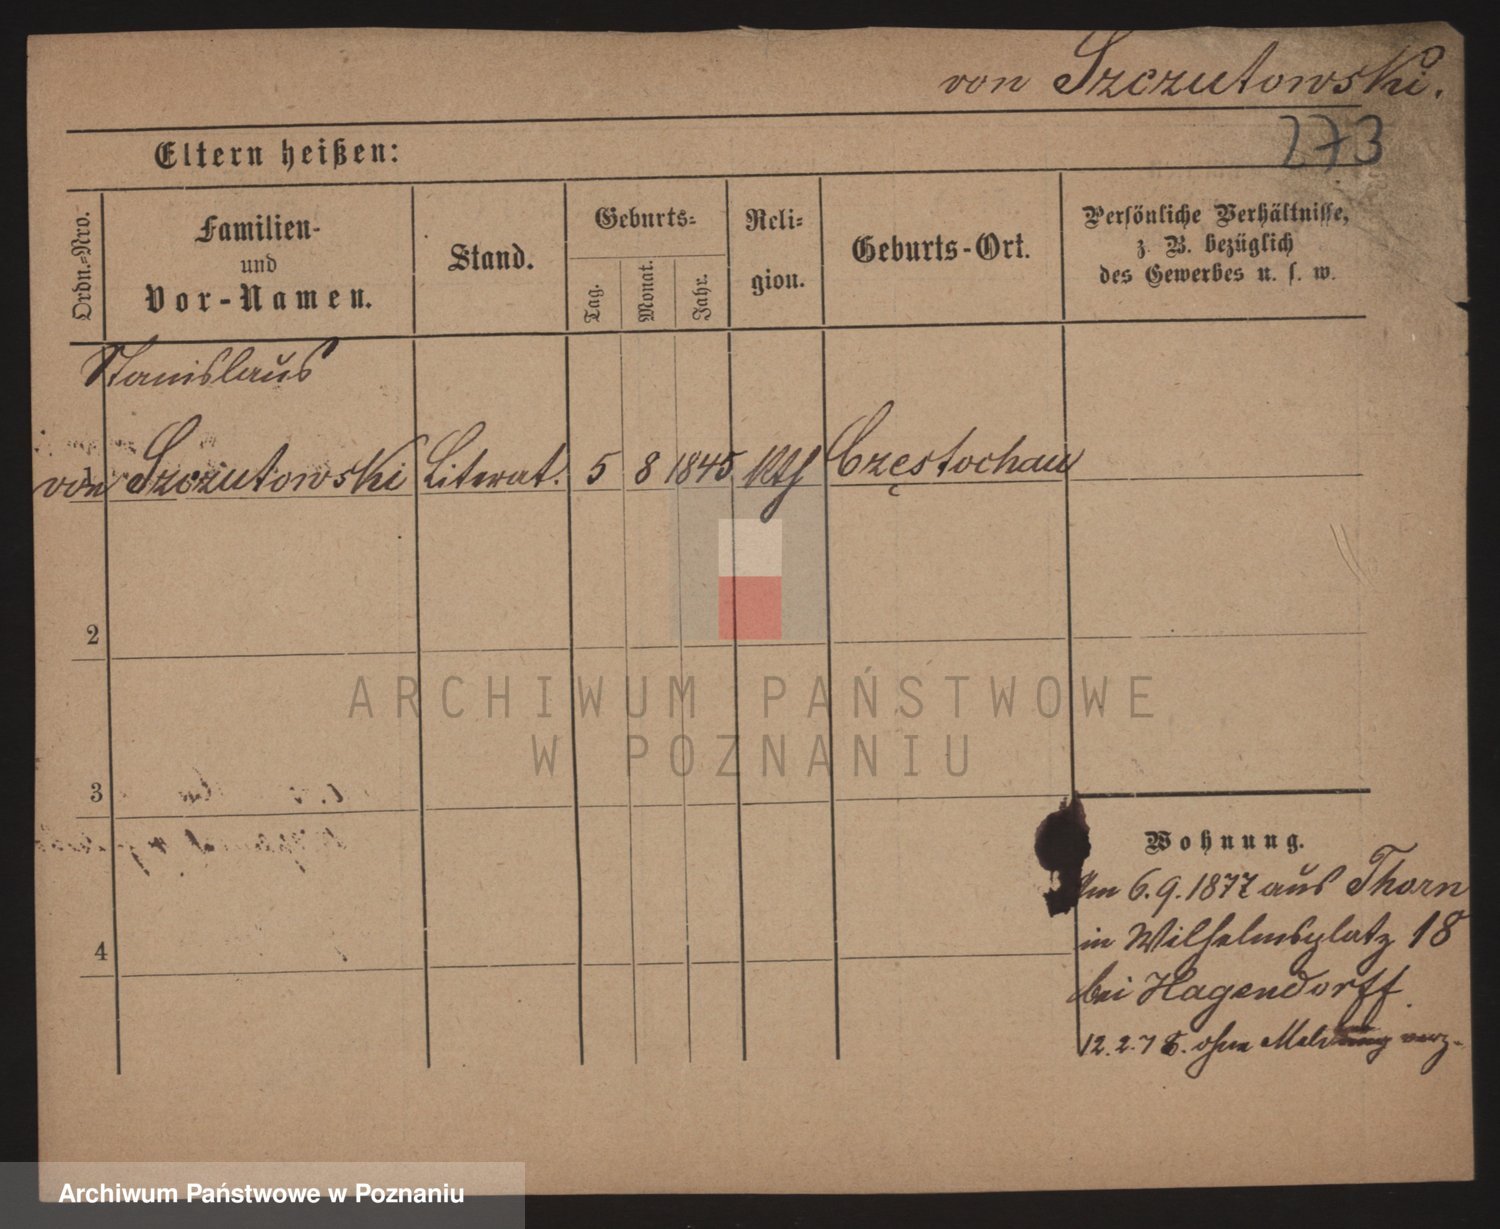 von Szczutowski.
273
Eltern heißen:
Ordn.-Nro.
Familien-
und
Vor-Namen.
Stand.
Geburts-
Tag.
Monat.
Jahr.
Reli-
gion.
Geburts-Ort.
Persönliche Verhältnisse,
z. B. bezüglich
des Gewerbes u. s. w.
Stanislaus
1
von Szczutowski Literat. 5 8 1845 Kth Częstochau
2
ARCHIWUM PAŃSTWOWE
W POZNANIU
3
Wohnung.
Am 6.9.1877 aus Thorn
in Wilhelmsplatz 18
bei Hagendorff.
4
12.2.78. ohne Meldung verz.
Archiwum Państwowe w Poznaniu